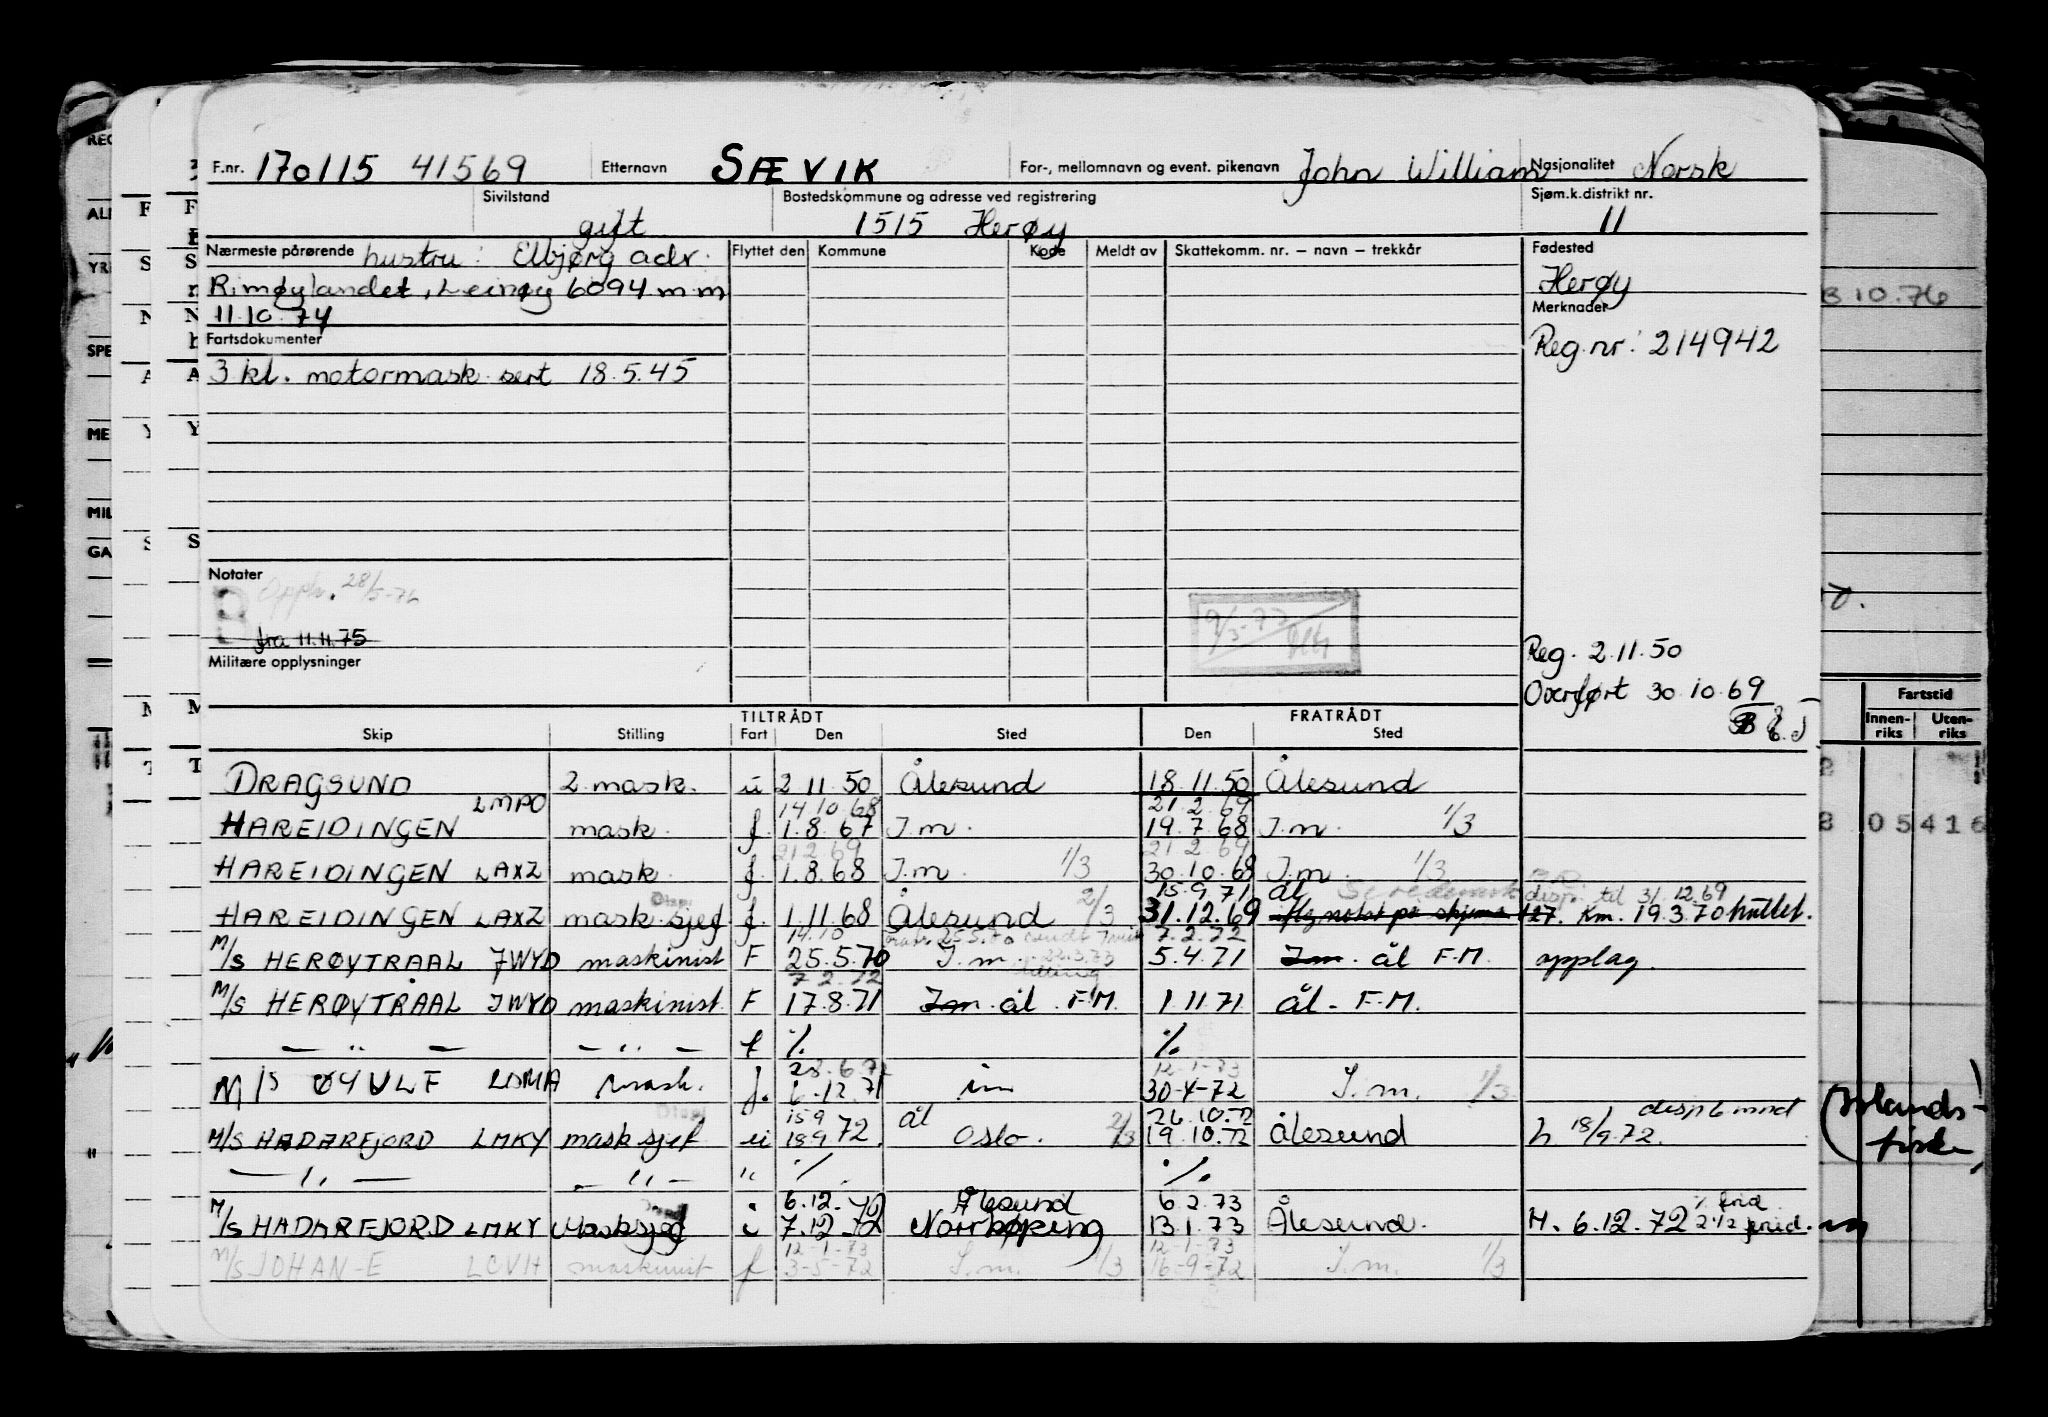 F.nr. 170115 41569 Etternavn SÆVIK For-, mellomnavn og event. pikenavn John William Nasjonalitet Norsk
Sivilstand gift Bostedskommune og adresse ved registrering 1515 Herøy Sjøm.k.distrikt nr. 11
Nærmeste pårørende hustru: Elbjørg adr. Flyttet den Kommune Kode Meldt av Skattekomm. nr. – navn – trekkår Fødested
Rimøylandet, Leinøy 6094 m m Herøy
11.10.74 Merknader
Fartsdokumenter Reg.nr: 214942
3 kl. motormask. sert 18.5.45
Notater
28/5-76
fra 11.11.75
9/3-77
Militære opplysninger
Reg. 2.11.50
Overført 30.10.69
TILTRÅDT FRATRÅDT
Skip Stilling Fart Den Sted Den Sted
DRAGSUND 2 mask. u 2 11.50 Ålesund 18.11.50 Ålesund
LMPO 14 10 68 21.2.69
HAREIDINGEN mask. f. 1.8.67 I.m. 19.7.68 I.m. 1/3
21 2 69 21 2.69
HAREIDINGEN LAXZ mask. f. 1.8.68 I.m. 1/3 30.10.68 I.m. 1/3
15.9.71 ål disp. til 31.12.69
HAREIDINGEN LAXZ mask sjef f. 1.11.68 Ålesund 2/3 31.12.69 Km. 19.3.70
14.10 7.2.72
M/S HERØYTRAAL JWYD maskinist F 25.5.70 I.m. 5.4.71 I.m. ål F.M. opplag.
7 2.72
M/S HERØYTRÅAL JWYD maskinist F 17.8.71 I.m. ål. F.M. 1.11.71 ål - F.M.
— " — — " — f ·/. ·/.
28.6.72 12-1-73
M/S ØYULF LDMA mask. f. 6.12.71 im 30-4-72 I.m. 1/3
159 ål 26.10.72 disp 6 mnd
M/S HADARFJORD LMKY mask sjef u 189 72. Oslo. 2/3 19.10.72 Ålesund h. 18/9.72.
— " — — " — " ·/. ·/.
6.12.72 Ålesund 6 2.73
M/S HADARFJORD LMKY Masksjef u 7.12.72 Norrkøping 13.1.73 Ålesund. H. 6.12.72
12-1-73 12-1-73
M/S JOHAN-E LCVH maskinist f 3-5-72 I.m. 1/3 16-9-72 I.m. 1/3
10.76
Fartstid
Innen-riks Uten-riks
05416
(Islands-
fiske)